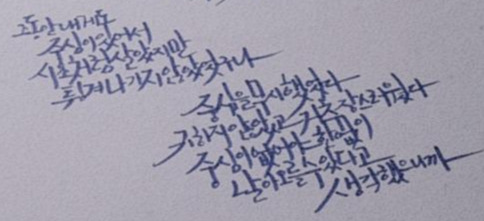 그동안 내게도
중심이 있어서
시소처럼 살았지만
튕겨나가지 않았었구나
중심을 무시했었다
귀하지 않았고 거추장스러웠다
중심이 없어야 한없이
날아오를 수 있다고
생각했으니까